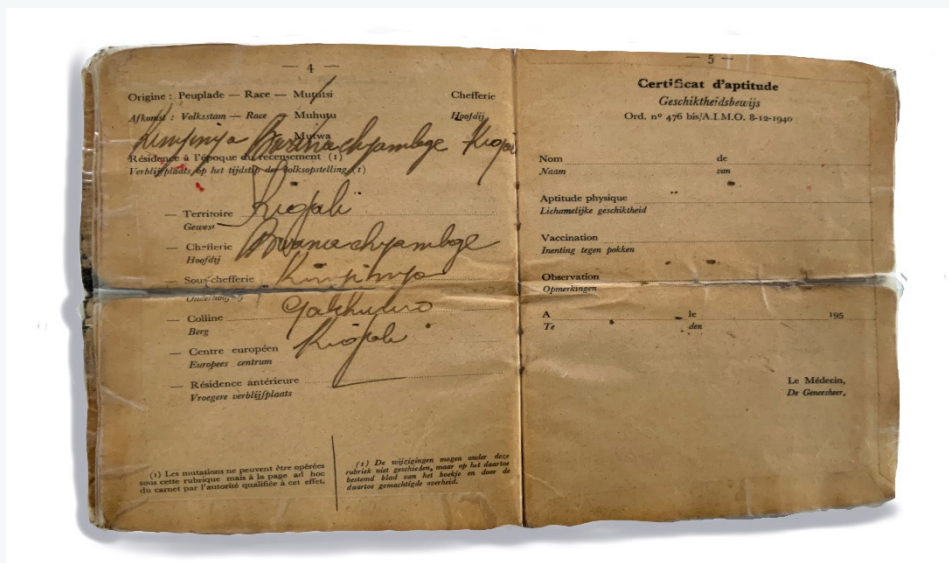 — 4 —
Origine : Peuplade — Race — Mututsi Chefferie
Afkomst : Volksstam — Race Muhutu Hoofdij
Mutwa
Kinyinya Bwanachyambge Kigali
Résidence à l'époque du recensement (1)
Verblijfplaats op het tijdstip der volksopstelling (1)
— Territoire Kigali
Gewest
— Chefferie Bwanachyambge
Hoofdij
— Sous-chefferie Kinyinya
— Colline
Berg
— Centre européen Kigali
Europees centrum
— Résidence antérieure
Vroegere verblijfplaats
(1) Les mutations ne peuvent être opérées
sous cette rubrique mais à la page ad hoc
du carnet par l'autorité qualifiée à cet effet.
(1) De wijzigingen mogen onder deze
rubriek niet geschieden, maar op het daartoe
bestemd blad van het boekje en door de
daartoe gemachtigde overheid.
— 5 —
Certificat d'aptitude
Geschiktheidsbewijs
Ord. nº 476 bis/A.I.M.O. 8-12-1940
Nom de
Naam van
Aptitude physique
Lichamelijke geschiktheid
Vaccination
Inenting tegen pokken
Observation
Opmerkingen
A le 195
Te den
Le Médecin,
De Geneesheer,